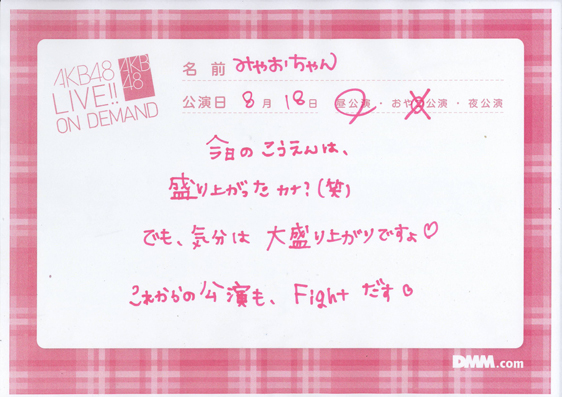 AKB48
LIVE!!
ON DEMAND
AKB
48
名前 みゃおちゃん
公演日 8月18日 昼公演・おやつ公演・夜公演
今日のこうえんは、
盛り上がったカナ?(笑)
でも、気分は大盛り上がりですよ♡
これからの公演も、Fightだす
DMM.com